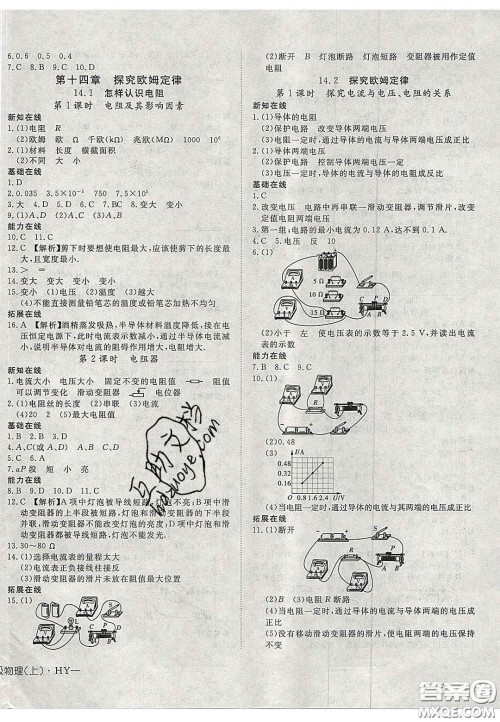 6.0.6 0.5 0.4
7.C 8.B 9.C 10.D
第十四章 探究欧姆定律
14.1 怎样认识电阻
第1课时 电阻及其影响因素
新知在线
1.(1)电阻 R
(2)欧姆 欧 Ω 千欧(kΩ) 兆欧(MΩ)
2.(1)材料 长度 横截面积
(2)不同 大 小
基础在线
1.D
2.0.035 3.5×10⁻⁵
3.大 4.D 5.D 6.C 7.D 8.C
9.(1)A、D (2)A、B (3)A、C
能力在线
10.C 11.C
12.C 【解析】剪下时要想使电阻最大,应剪伏安法的长度最
大,且宽度最小。
13.> =
14.变大 变小 变大 变小
15.变小 (1)电压 (2)温度 (3)越大
(4)不能直接测量铅笔芯的温度或铅笔芯加热不均匀
拓展在线
16.A 【解析】酒精蒸发吸热,半导体材料温度降低,在电
压恒定电源下,此时电流表示数减小,通过半导体电流变
小,说明半导体对电流的阻碍作用增大,电阻增大。
第2课时 电阻器
新知在线
1.电流大小 电压大小 固定不变的电阻值 电阻值
可以调节变化 滑动变阻器
2.(1)电阻丝的长度 (2)串联 (3)电流
(4)20 2 (5)最大电阻值
基础在线
1.B 2.B 3.D
4.A、C(或A、D) 变大 5.C 6.A
7.aP段 短 小 亮
能力在线
8.B 9.D 10.D 11.B
13.30～80 Ω
14.(1)电流表的量程太大
(2)电流表正负接线柱接反
(3)滑动变阻器的滑片没有移到阻值最大位置
拓展在线
15.(1)
级物理(上)·HY—
(2)断开 灯泡断路 灯泡短路 变阻器被用作定值
电阻
14.2 探究欧姆定律
第1课时 探究电流与电压、电阻的关系
新知在线
1.(1)导体的电阻
(2)保护电路 改变导体两端电压
(3)电阻一定时,通过导体的电流与导体两端电压成正比
2.(1)导体两端的电压
(2)保护电路 控制导体两端电压一定
基础在线
1.C
2.改变电压 电路中再串联一滑动变阻器,调节滑片,改变
定值电阻两端电压
3.第一组;电路的最小电流为0.12 A,达不到0.1 A.
4.C 5.电压 反 10
6.(1)
5 Ω
10 Ω
15 Ω
(2)小于 左 使电压表的示数等于2.5 V,并读出电流
表的示数
能力在线
7.B 8.C 9.C
10.(1)
(2)0.48
(3)
I/A
0.64
0.48
0.32
0.16
0 0.8 1.6 2.4 U/V
(4)当电阻一定时,导体的电流与其两端的电压成正比
拓展在线
11.(1)
(2)R断路
(3)断开
(4)当电阻一定时,通过导体的电流与导体两端的电压成
正比
(5)没有移动滑动变阻器的滑片,使电阻两端的电压保持
不变
互助文档
hzduoye.com
答案圈
MXQE.COM